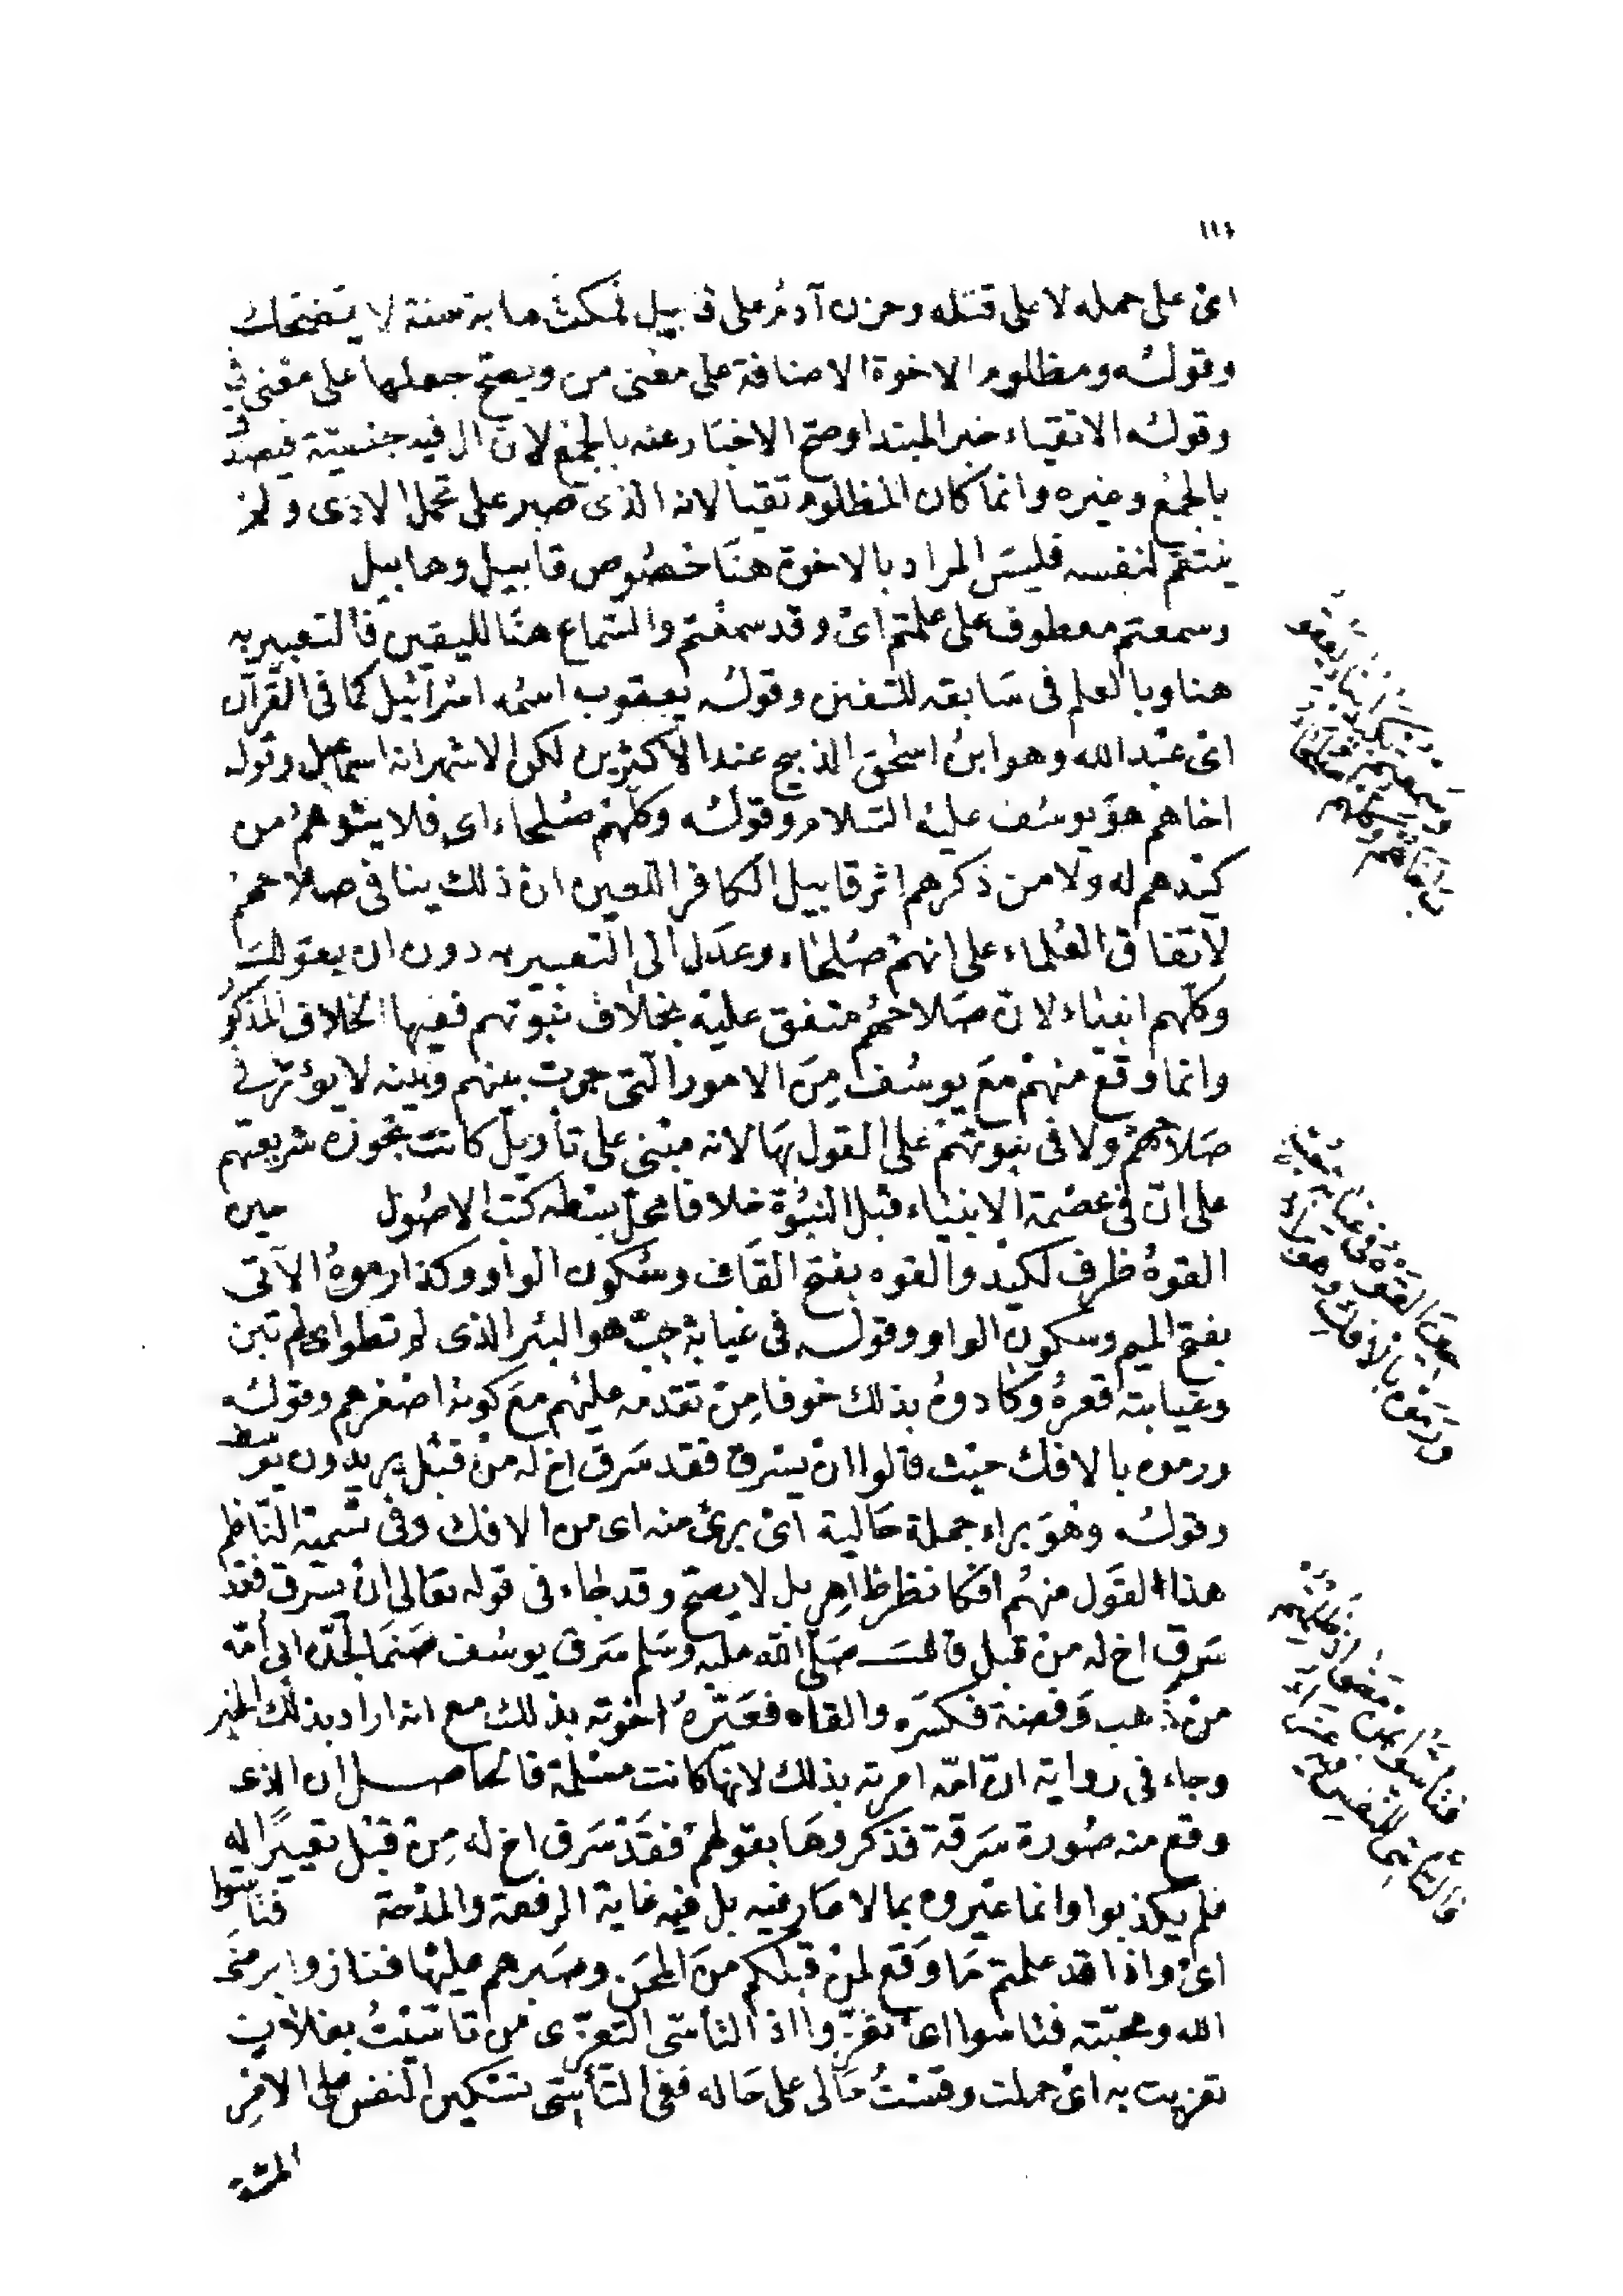 ١١٤
اى على حمله لا على قتله وحزن آدم على قابيل فمكث ماية سنة لا يضحك
وقوله ومظلوم الاخوة الاضافة على معنى من ويصح جعلها على معنى فى
وقوله الاتقياء خبر المبتدا وصح الاخبار عنه بالجمع لان ال فيه جنسية فيصدق
بالجمع وغيره وانما كان المظلوم تقيا لانه الذى صبر على تحمل الاذى ولم
ينتقم لنفسه فليس المراد بالاخوة هنا خصوص قابيل وهابيل
وسمعتم معطوف على علمتم اى وقد سمعتم والسماع هنا لليقين فالتعبير به
هنا وبالعلم فى سابقه للتفنن وقوله يعقوب اسمه اسرآئيل كما فى القرآن
اى عبد الله وهو ابن اسحق الذبيح عند الاكثرين لكن الاشهر انه اسماعيل وقوله
اخاهم هو يوسف عليه السلام وقوله وكلهم صلحاء اى فلا يتوهم من
كيدهم له ولا من ذكرهم اثر قابيل الكافر اللعين ان ذلك ينافى صلاحهم
لاتفاق العلماء على انهم صلحاء وعدل الى التعبير به دون ان يقول
وكلهم انبياء لان صلاحهم متفق عليه بخلاف نبوتهم ففيها الخلاف المذكور
وانما وقع منهم مع يوسف من الامور التى جرت بينهم وبينه لا يؤثر فى
صلاحهم ولا فى نبوتهم على القول بها لانه مبنى على تأويل كانت تجوزه شريعتهم
على ان فى عصمة الانبياء قبل النبوة خلافا محل بسطه كتب الاصول حين
القوه ظرف لكيد والقوه بفتح القاف وسكون الواو وكذا رموه الآتى
بفتح الميم وسكون الواو وقوله فى غيابة جب هو البئر الذى لم تطو اى لم تبن
وغيابته قعره وكادوه بذلك خوفا من تقدمه عليهم مع كونه اصغرهم وقوله
ورموه بالافك حيث قالوا ان يسرق فقد سرق اخ له من قبل يريدون يوسف
وقوله وهو براء جملة حالية اى برئ منه اى من الافك وفى تسمية الناظم
هذا القول منهم افكا نظر ظاهر بل لا يصح وقد جاء فى قوله تعالى ان يسرق فقد
سرق اخ له من قبل قال صلى الله عليه وسلم سرق يوسف صنما لجده ابى امه
من ذهب وفضة فكسره والقاه فعيره اخوته بذلك مع انه اراد بذلك الخير
وجاء فى رواية ان امه امرته بذلك لانها كانت مسلمة فالحاصل ان الذى
وقع منه صورة سرقة فذكروها بقولهم فقد سرق اخ له من قبل تعييرًا له
فلم يكذبوا وانما عيروه بما لا عار فيه بل فيه غاية الرفعة والمدحة فتأسوا
اى واذا قد علمتم ما وقع لمن قبلكم من المحن وصبرهم عليها ففازوا برضى
الله ومحبته فتاسوا اى تعزوا اذ التأسى التعزى من تاسيت بفلان
تعزيت به اى حملت وقست حالى على حاله ففى التأسى تسكين النفس على الامر
المشقة
وسمعتم بكيد ابناء يعقو
ب اخاهم وكلهم صلحاء
حين القوه فى غيابة جب
ورموه بالافك وهو براء
فتأسوا بمن مضى اذ ظلمتم
فالتأسى للنفس فيه عزاء